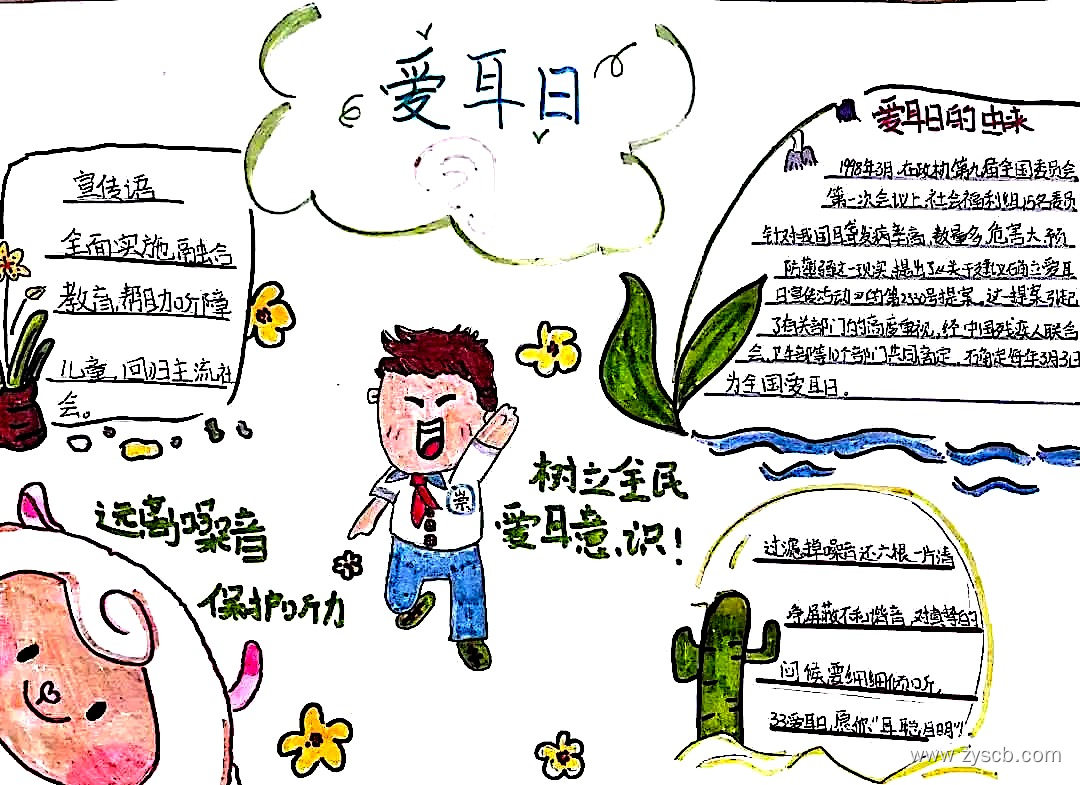 爱耳日
宣传语
全面实施融合
教育,帮助听障
儿童,回归主流社
会。
爱耳日的由来
1998年3月,在政协第九届全国委员会
第一次会议上,社会福利组15名委员
针对我国耳聋发病率高,数量多,危害大,预
防薄弱这一现实,提出了《关于建议确立爱耳
日宣传活动》的第2330号提案。这一提案引起
了有关部门的高度重视,经中国残疾人联合
会、卫生部等10个部门共同商定,
为全国爱耳日。
远离噪音
保护听力
树立全民
爱耳意识!
崇
过滤掉噪音还六根一片清
净,屏蔽不和谐音,对真挚的
问候要细细倾听,
33爱耳日,愿你“耳聪目明”!
www.zyscb.com